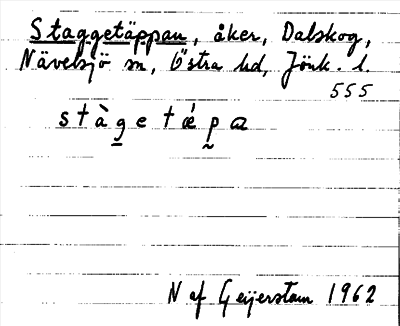 Staggetäppan, åker, Dalskog,
Nävelsjö sn, Östra hd, Jönk. l.
555
stàg̲e tǽp̰a
N af Geijerstam 1962